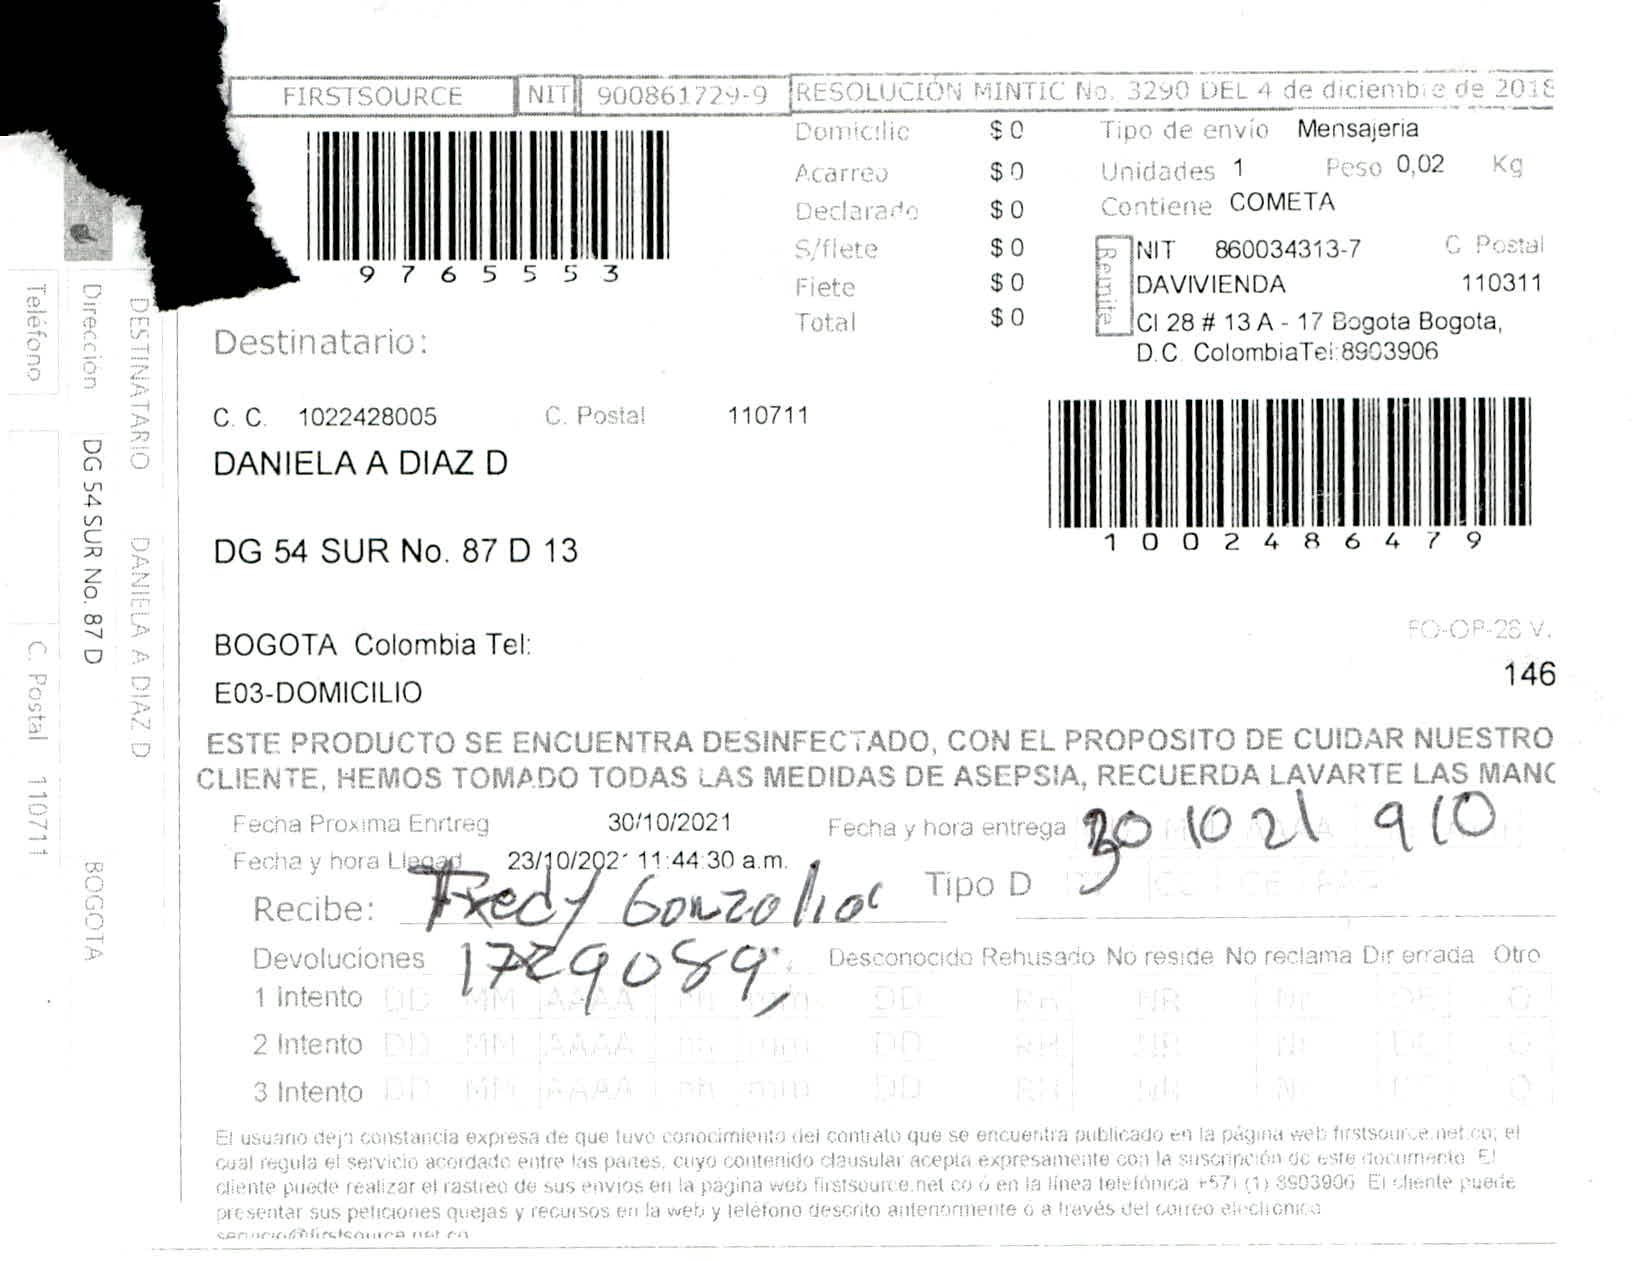 FIRSTSOURCE NIT 900861729-9 RESOLUCIÓN MINTIC No. 3290 DEL 4 de diciembre de 2018
9765553
Domicilio $ 0
Acarreo $ 0
Declarado $ 0
S/flete $ 0
Flete $ 0
Total $ 0
Tipo de envío Mensajeria
Unidades 1 Peso 0,02 Kg
Contiene COMETA
Remite
NIT 860034313-7 C Postal
DAVIVIENDA 110311
Cl 28 # 13 A - 17 Bogota Bogota,
D.C. Colombia Tel:8903906
Destinatario:
C. C. 1022428005 C. Postal 110711
DANIELA A DIAZ D
DG 54 SUR No. 87 D 13
1002486479
BOGOTA Colombia Tel:
E03-DOMICILIO
FO-OP-28 V.
146
ESTE PRODUCTO SE ENCUENTRA DESINFECTADO, CON EL PROPOSITO DE CUIDAR NUESTRO
CLIENTE, HEMOS TOMADO TODAS LAS MEDIDAS DE ASEPSIA, RECUERDA LAVARTE LAS MANO
Fecha Proxima Enrtreg 30/10/2021 Fecha y hora entrega 30 10 21 910
Fecha y hora Llegad 23/10/2021 11:44:30 a.m.
Recibe: Fredy Tipo D
Devoluciones Desconocido Rehusado No reside No reclama Dir errada Otro
1 Intento DD MM AAAA hh mm DD RH NR Nr DE O
2 Intento DD MM AAAA hh mm DD RH NR Nr DE O
3 Intento DD MM AAAA hh mm DD RH NR Nr DE O
El usuario deja constancia expresa de que tuvo conocimiento del contrato que se encuentra publicado en la página web firstsource.net.co; el
cual regula el servicio acordado entre las partes, cuyo contenido clausular acepta expresamente con la suscripción de este documento. El
cliente puede realizar el rastreo de sus envios en la pagina web firstsource.net.co ó en la línea telefónica +571 (1) 8903906 El cliente puede
presentar sus peticiones quejas y recursos en la web y teléfono descrito anteriormente o a través del correo electronico
servicio@firstsource.net.co
DESTINATARIO DANIELA A DIAZ D
Dirección DG 54 SUR No. 87 D BOGOTA
Teléfono C. Postal 110711